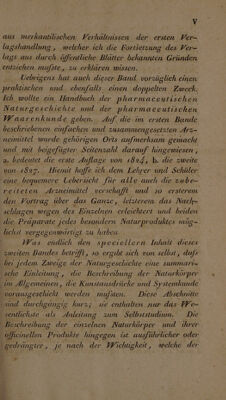 V
aus merkantilischen Verhältnissen der ersten Ver-
lagshandlung, welcher ich die Fortsetzung des Ver-
lags aus durch öffentliche Blätter bekannten Gründen
entziehen mufste, zu erklären wissen.
Uebrigens hat auch dieser Band vorzüglich einen
praktischen und ebenfalls einen doppelten Zweck.
Ich wollte ein Handbuch der pharmaceutischen
Naturgeschichte und der pharmaceutischen
Waarenkunde geben. Auf die im ersten Bande
beschriebenen einfachen und zusammengesetzten Arz-
neimittel wurde gehörigen Orts aufmerksam gemacht
und mit beigefügter Seitenzahl darauf hingewiesen,
a. bedeutet die erste Auflage von 1824, b. die zweite
von 1827. Hiemit hoffe ich dem Lehrer und Schüler
eine bequemere Uebersicht für alle auch die zube-
reiteten Arzneimittel verschafft und so ersterem
den Vortrag über das Ganze, letzterem das Nach-
schlagen wegen des Einzelnen erleichtert und beiden
die Präparate jedes besonderen Naturproduktes mög-
lichst vergegenwärtigt zu haben.
Was endlich den speciellern Inhalt dieses
zweiten Bandes betrifft, so ergibt sich von selbst, dafs
bei jedem Zweige der Naturgeschichte eine summari-
sche Einleitung, die Beschreibung der Naturkörper
im Allgemeinen, die Kunstausdrücke und Systemkunde
vorausgeschickt werden mufsten. Diese Abschnitte
sind durchgängig kurz; sie enthalten nur das We-
sentlichste als Anleitung zum Selbststudium. Die
Beschreibung der einzelnen Naturkörper und ihrer
officinellen Produkte hingegen ist ausführlicher oder
gedrängter, je nach der Wichtigkeit, welche der